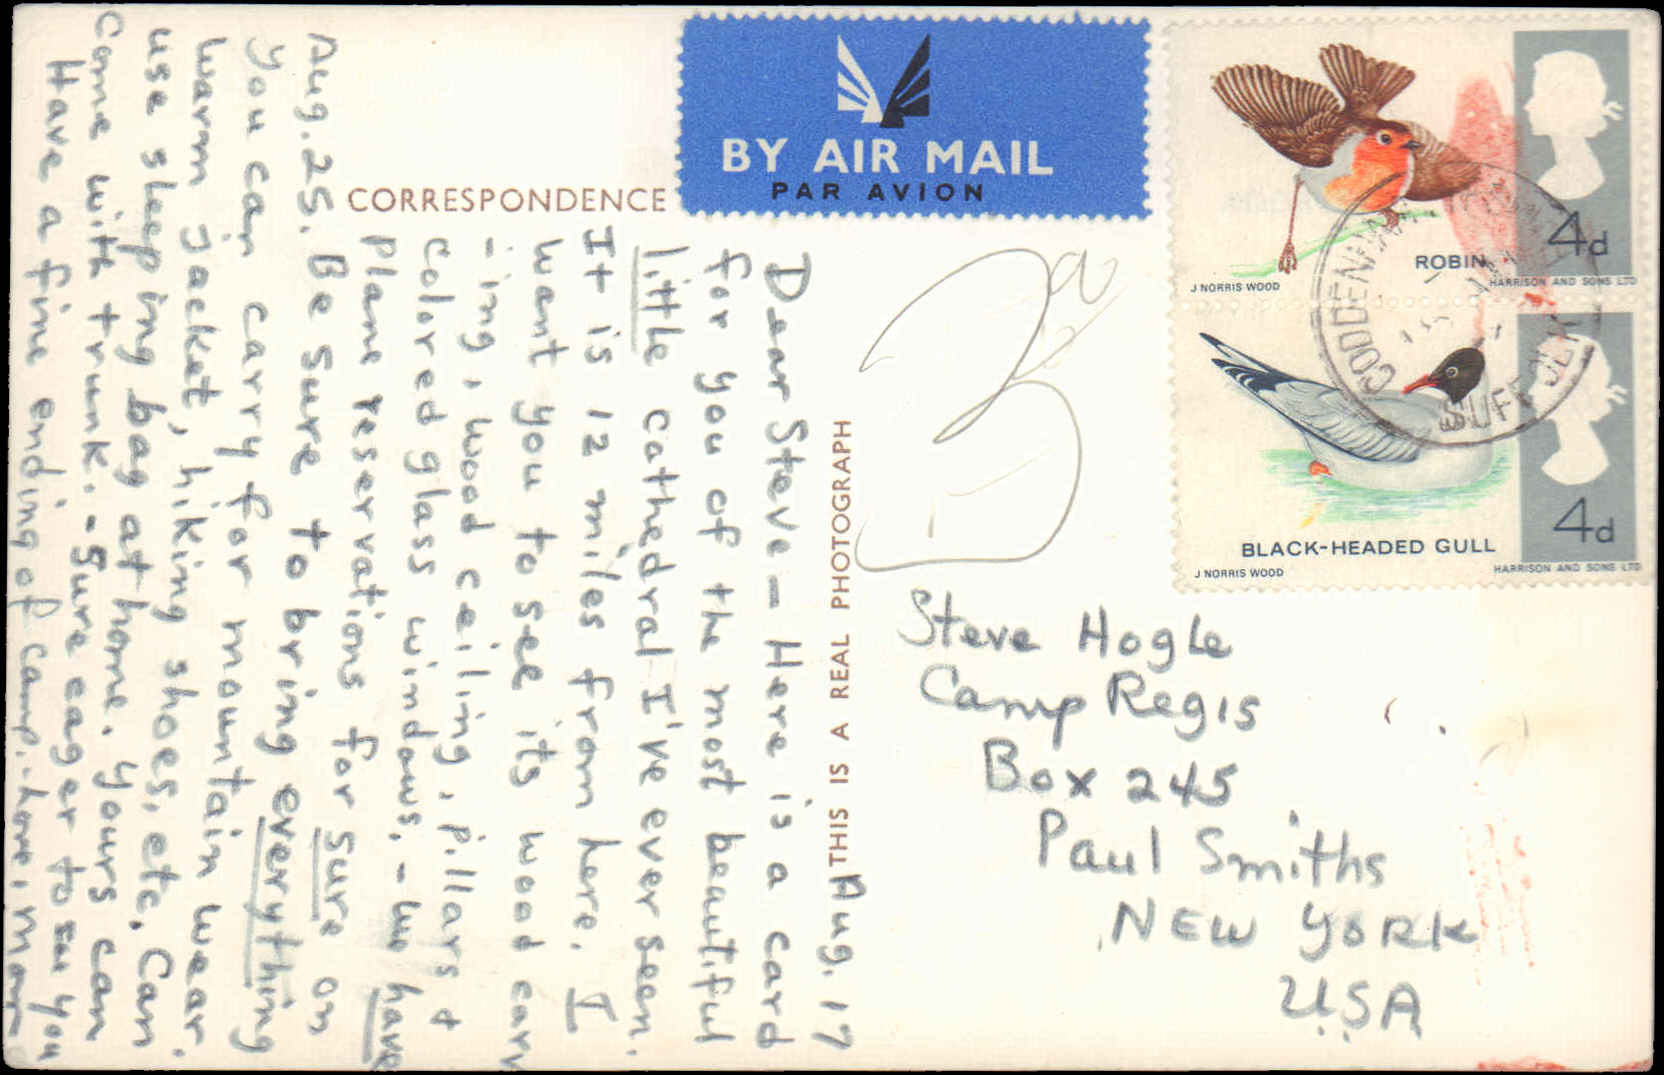 CORRESPONDENCE
BY AIR MAIL
PAR AVION
ROBIN
4d
J NORRIS WOOD
HARRISON AND SONS LTD
CODDENHAM
SUFFOLK
BLACK-HEADED GULL
4d
J NORRIS WOOD
HARRISON AND SONS LTD
THIS IS A REAL PHOTOGRAPH
Aug. 17
Dear Steve - Here is a card
for you of the most beautiful
little cathedral I've ever seen.
It is 12 miles from here. I
want you to see its wood carv
-ing, wood ceiling, pillars &
colored glass windows. - we have
plane reservations for sure on
Aug. 25. Be sure to bring everything
you can carry for mountain wear.
warm jacket, hiking shoes, etc. Can
use sleeping bag at home. yours can
come with trunk. - Sure eager to see you
Have a fine ending of camp. - Love, Mom
Steve Hogle
Camp Regis
Box 245
Paul Smiths
NEW YORK
USA